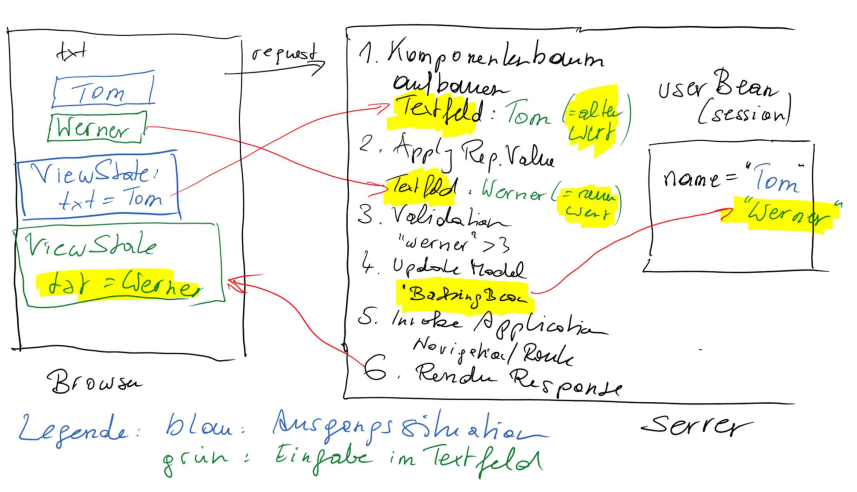 txt
Tom
Werner
ViewState:
txt = Tom
ViewState
txt = Werner
Browser
request
1. Komponentenbaum
aufbauen
Textfeld: Tom (=alter
Wert)
2. Apply Rep. Value
Textfeld: Werner (=neuer
Wert)
3. Validation
"Werner" >3
4. Update Model
"BackingBean
5. Invoke Application
Navigation/Route
6. Render Response
userBean
(session)
name = "Tom"
"Werner"
Server
Legende: blau: Ausgangssituation
grün: Eingabe im Textfeld